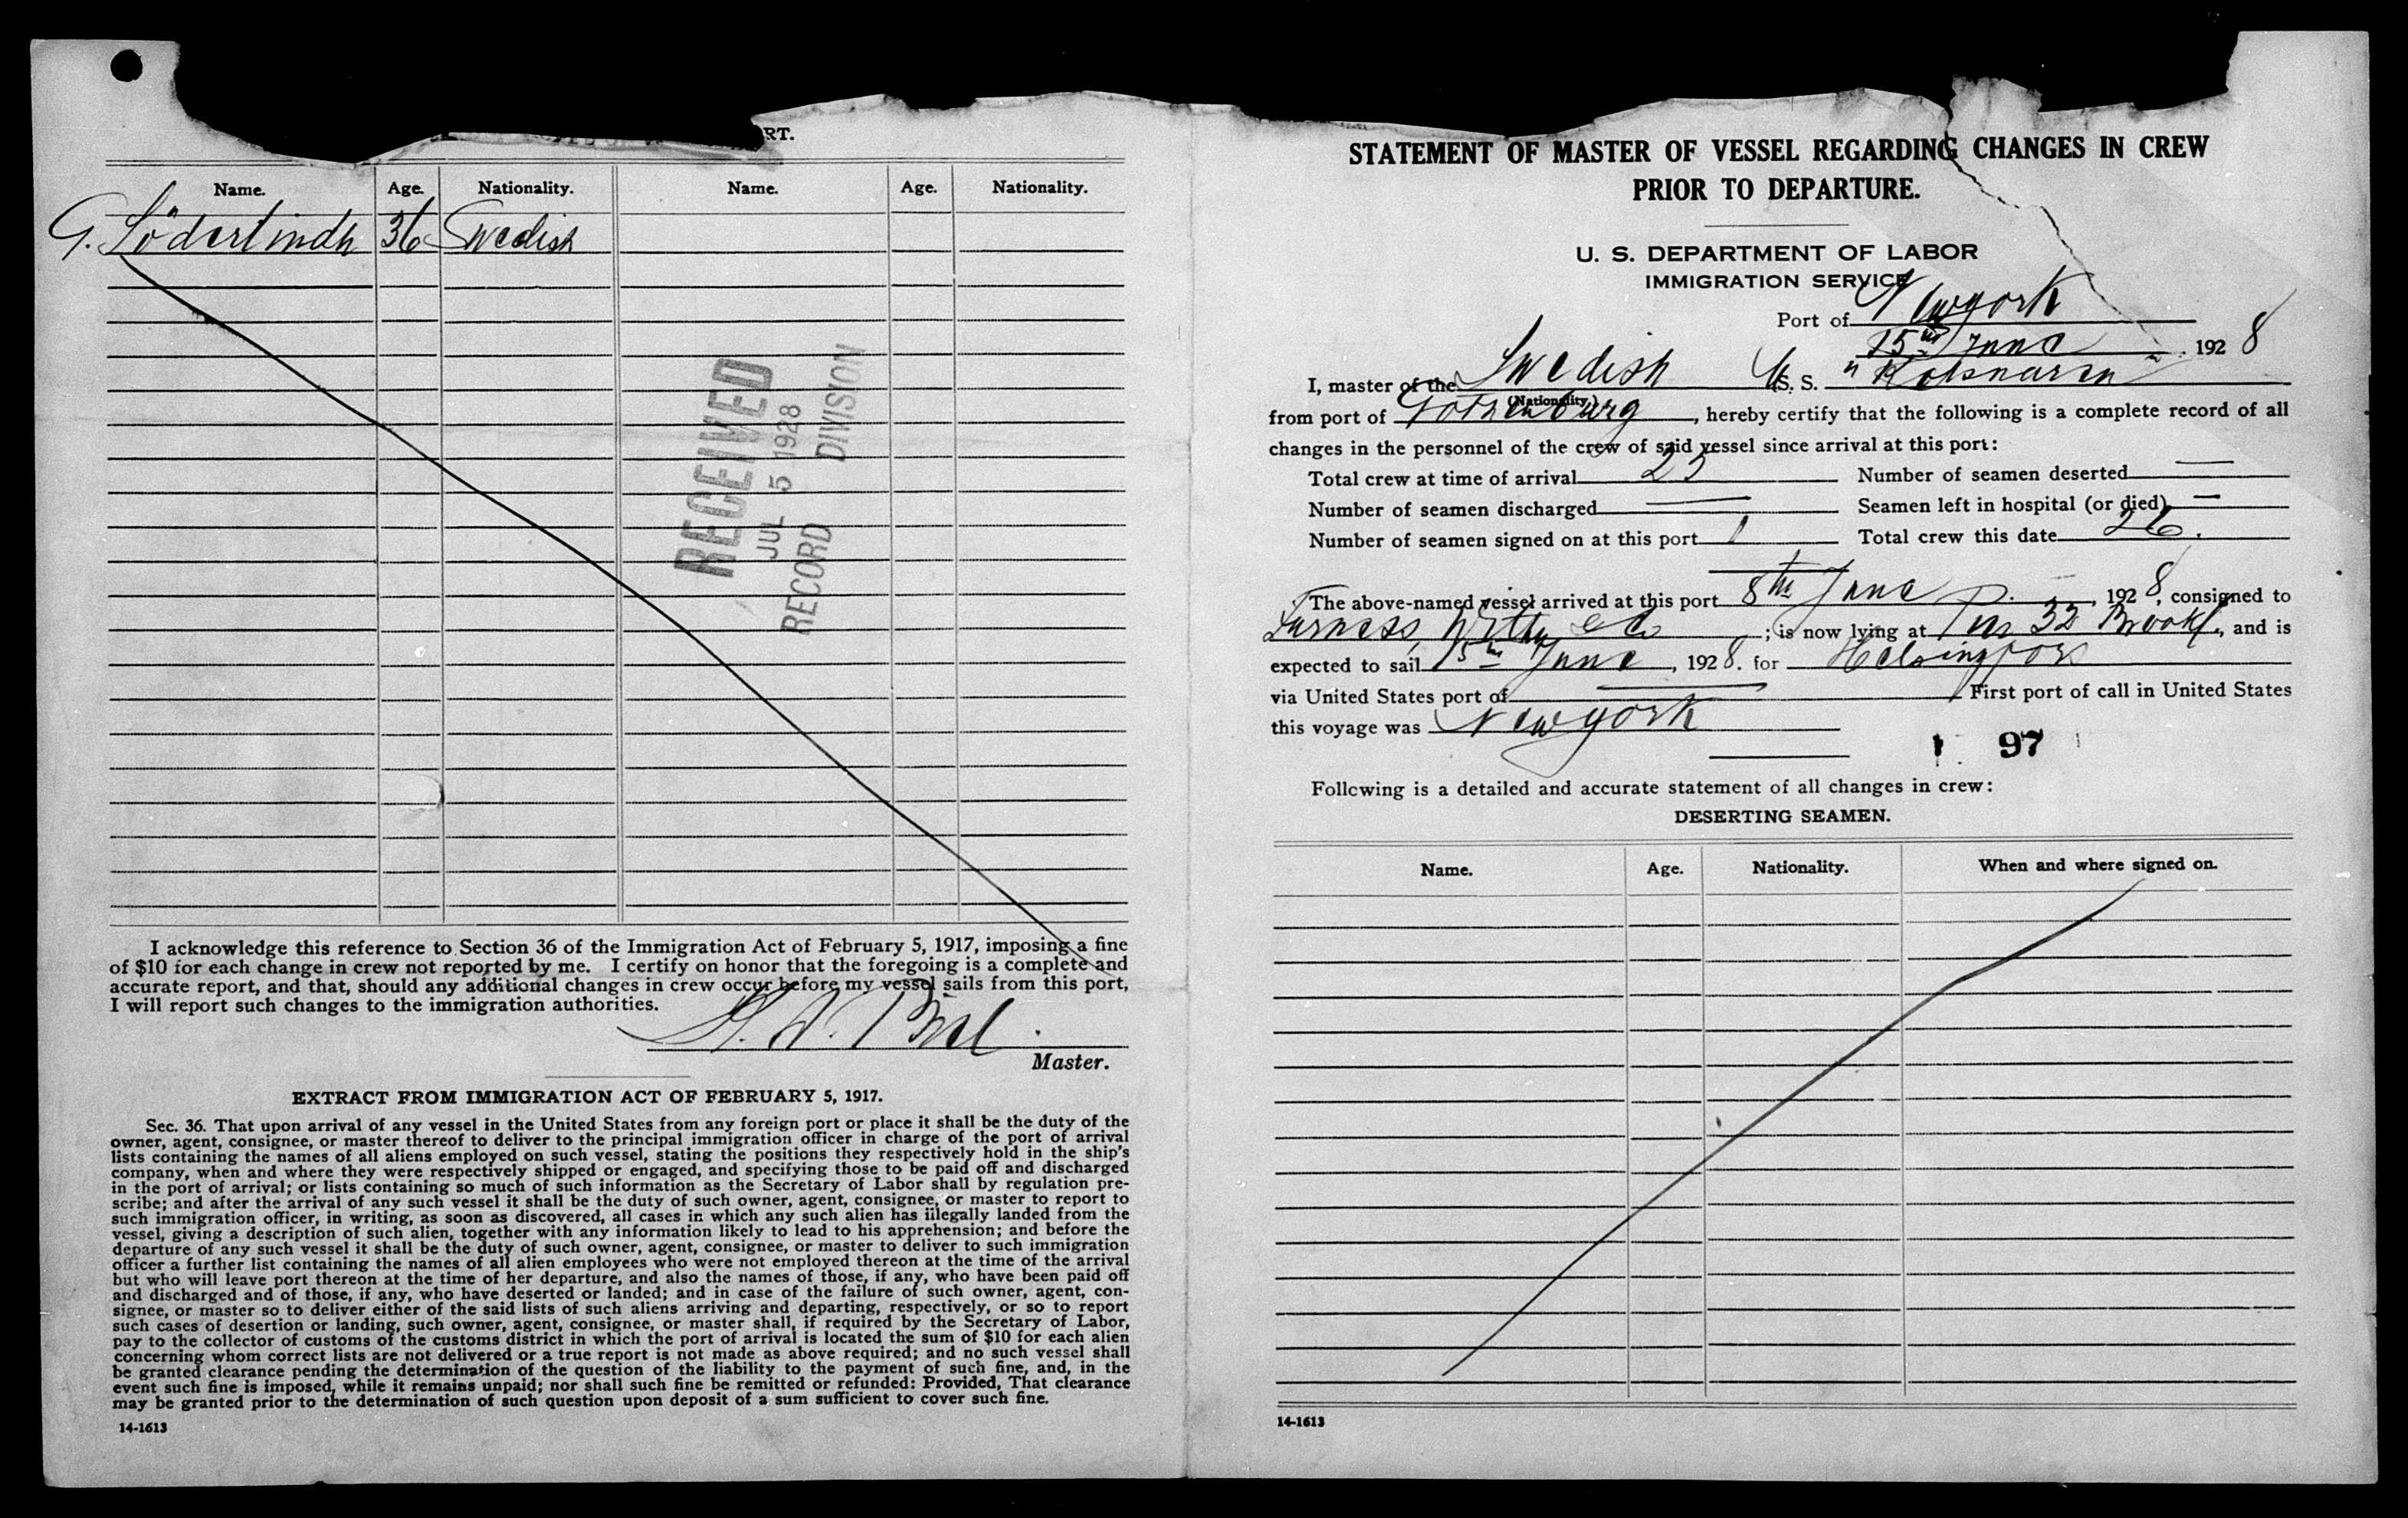 RT.
Name. Age. Nationality. Name. Age. Nationality.
G. Söderlindh 36 Swedish
RECEIVED
JUL 5 1928
RECORD DIVISION
I acknowledge this reference to Section 36 of the Immigration Act of February 5, 1917, imposing a fine
of $10 for each change in crew not reported by me. I certify on honor that the foregoing is a complete and
accurate report, and that, should any additional changes in crew occur before my vessel sails from this port,
I will report such changes to the immigration authorities.
Master.
EXTRACT FROM IMMIGRATION ACT OF FEBRUARY 5, 1917.
Sec. 36. That upon arrival of any vessel in the United States from any foreign port or place it shall be the duty of the
owner, agent, consignee, or master thereof to deliver to the principal immigration officer in charge of the port of arrival
lists containing the names of all aliens employed on such vessel, stating the positions they respectively hold in the ship's
company, when and where they were respectively shipped or engaged, and specifying those to be paid off and discharged
in the port of arrival; or lists containing so much of such information as the Secretary of Labor shall by regulation pre-
scribe; and after the arrival of any such vessel it shall be the duty of such owner, agent, consignee, or master to report to
such immigration officer, in writing, as soon as discovered, all cases in which any such alien has illegally landed from the
vessel, giving a description of such alien, together with any information likely to lead to his apprehension; and before the
departure of any such vessel it shall be the duty of such owner, agent, consignee, or master to deliver to such immigration
officer a further list containing the names of all alien employees who were not employed thereon at the time of the arrival
but who will leave port thereon at the time of her departure, and also the names of those, if any, who have been paid off
and discharged and of those, if any, who have deserted or landed; and in case of the failure of such owner, agent, con-
signee, or master so to deliver either of the said lists of such aliens arriving and departing, respectively, or so to report
such cases of desertion or landing, such owner, agent, consignee, or master shall, if required by the Secretary of Labor,
pay to the collector of customs of the customs district in which the port of arrival is located the sum of $10 for each alien
concerning whom correct lists are not delivered or a true report is not made as above required; and no such vessel shall
be granted clearance pending the determination of the question of the liability to the payment of such fine, and, in the
event such fine is imposed, while it remains unpaid; nor shall such fine be remitted or refunded: Provided, That clearance
may be granted prior to the determination of such question upon deposit of a sum sufficient to cover such fine.
14-1613
STATEMENT OF MASTER OF VESSEL REGARDING CHANGES IN CREW
PRIOR TO DEPARTURE.
U. S. DEPARTMENT OF LABOR
IMMIGRATION SERVICE
Port of Newyork
15th June, 1928
I, master of the Swedish S. S. "Kolsnaren"
(Nationality.)
from port of Gothenburg, hereby certify that the following is a complete record of all
changes in the personnel of the crew of said vessel since arrival at this port:
Total crew at time of arrival 25 Number of seamen deserted —
Number of seamen discharged — Seamen left in hospital (or died) —
Number of seamen signed on at this port 1 Total crew this date 26.
The above-named vessel arrived at this port 8th June, 1928, consigned to
Furness, Withy & Co; is now lying at Pier 32 Brookl., and is
expected to sail 15th June, 1928. for Helsingfors
via United States port of — First port of call in United States
this voyage was Newyork
97
Following is a detailed and accurate statement of all changes in crew:
DESERTING SEAMEN.
Name. Age. Nationality. When and where signed on.
14-1613